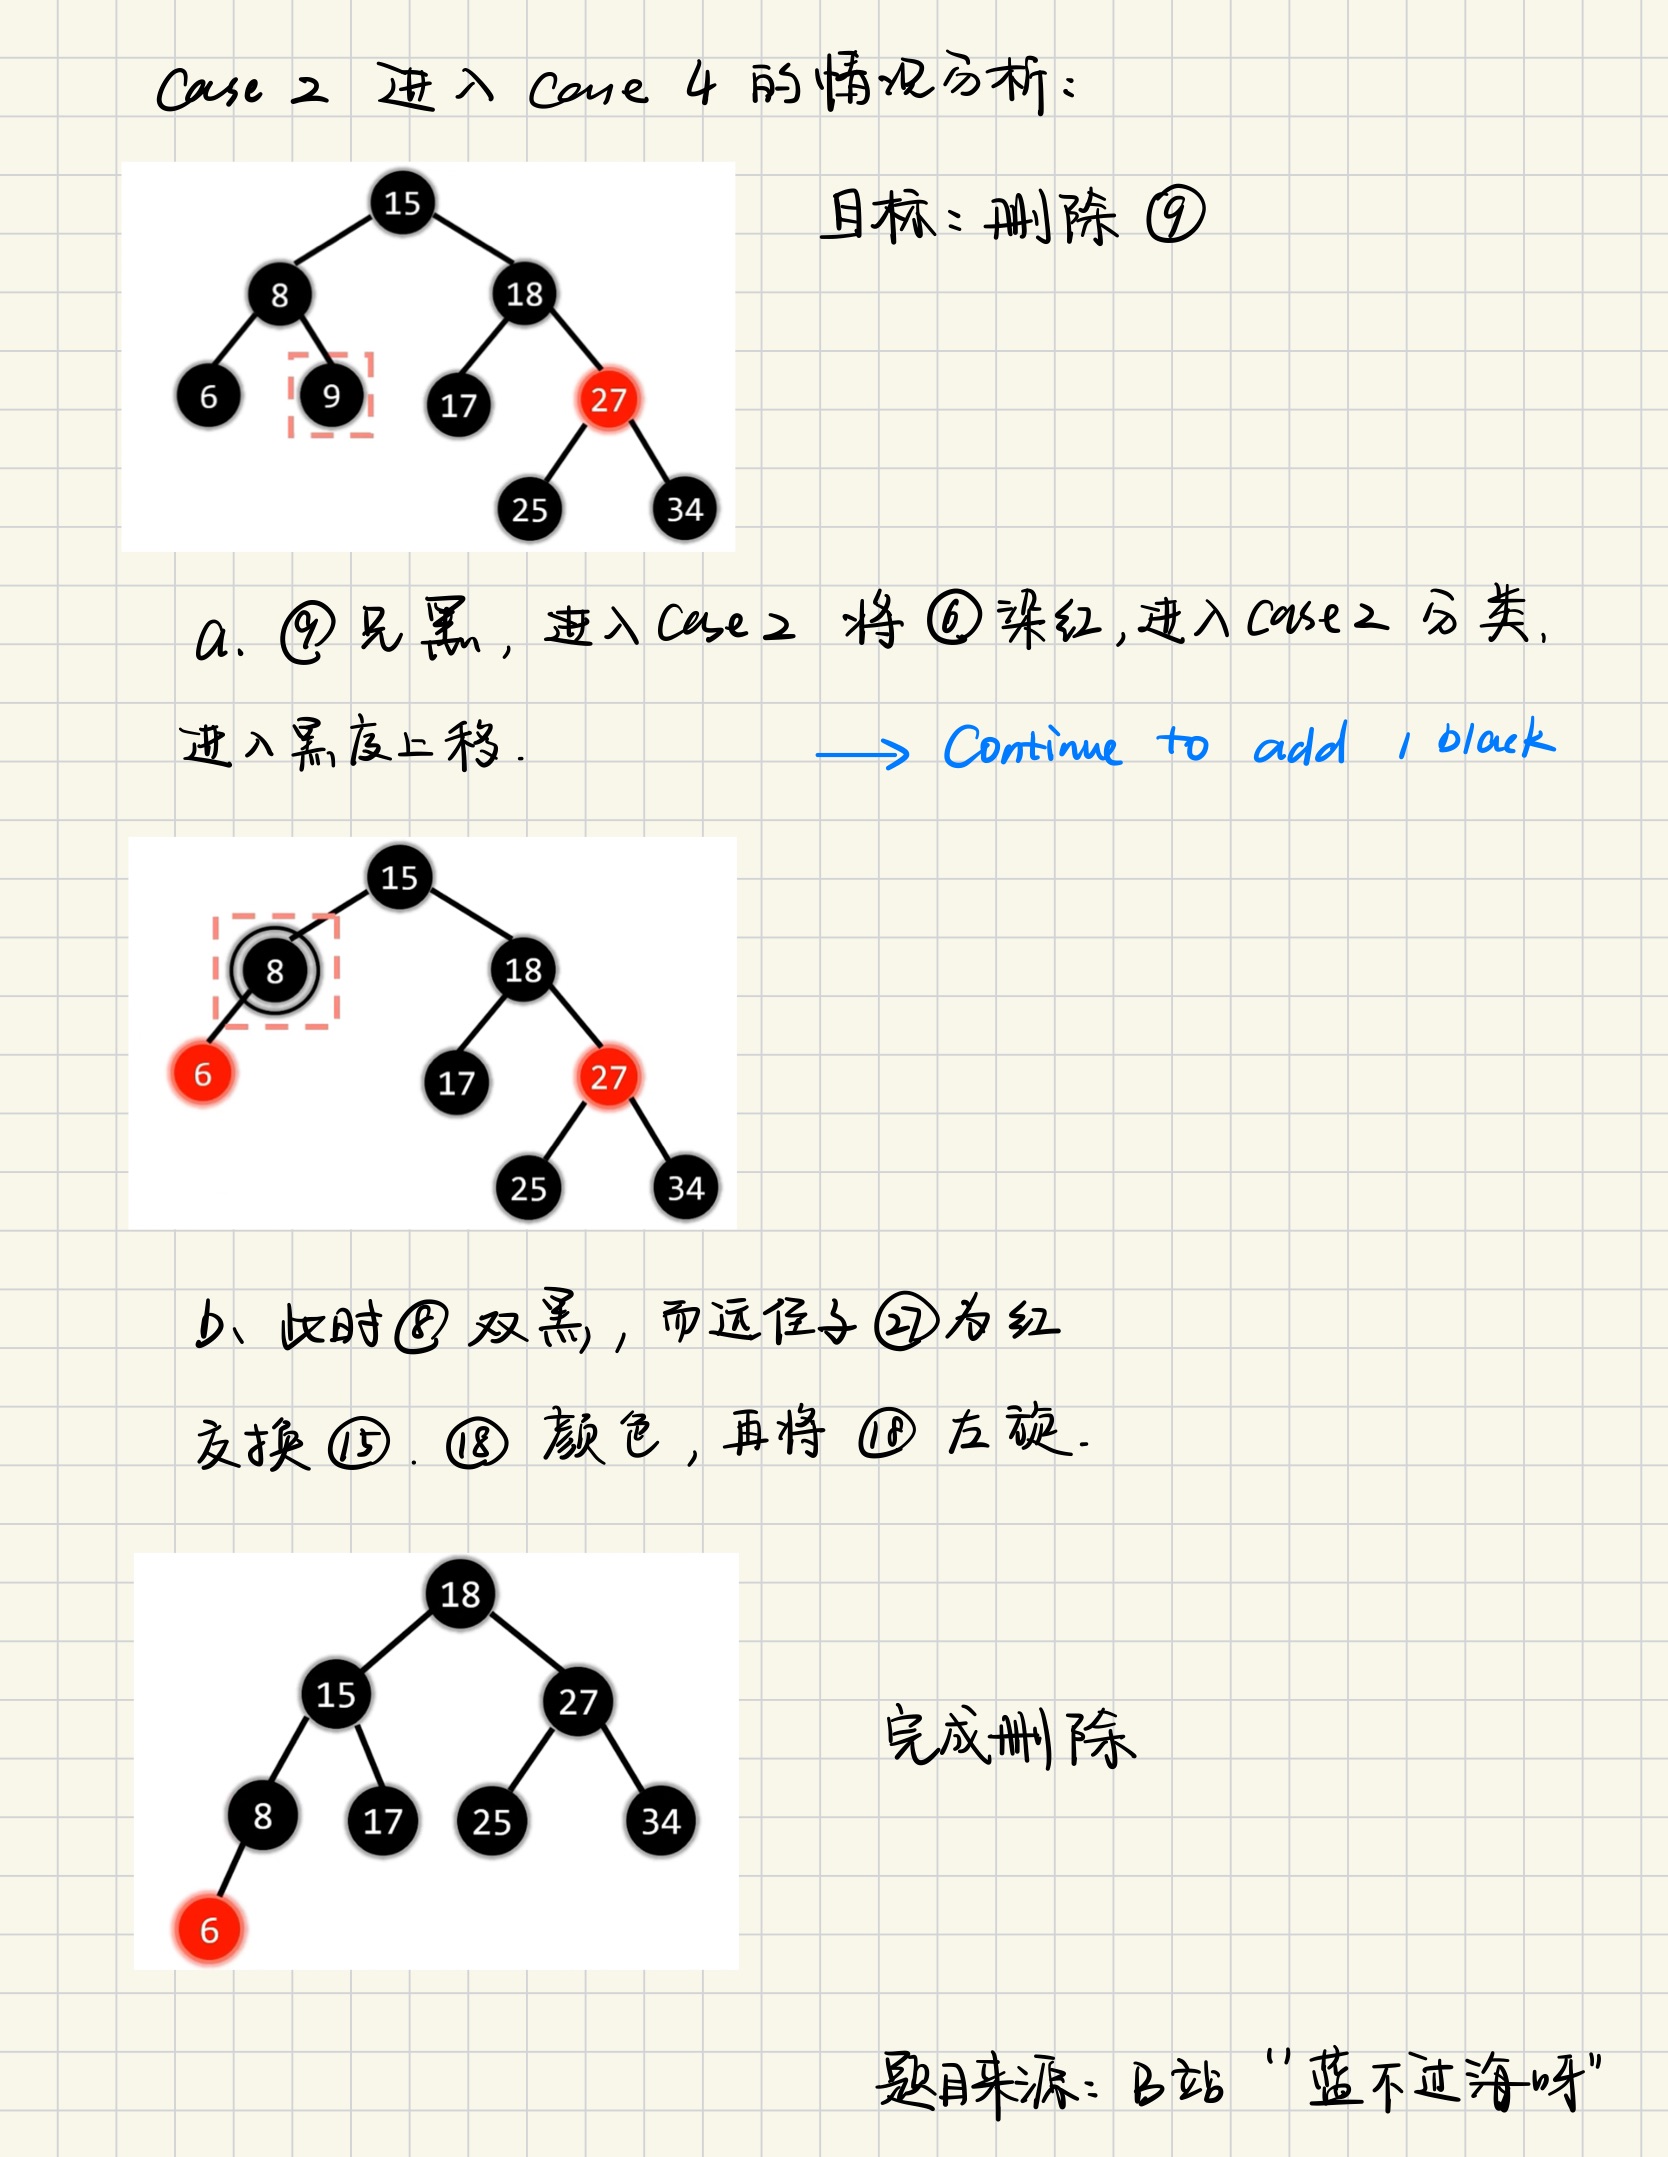 Case 2 进入 Case 4 的情况分析:
目标: 删除 ⑨
15
8 18
6 9 17 27
25 34
a. ⑨兄黑, 进入Case 2 将⑥染红, 进入Case 2 分类,
进入黑度上移. → Continue to add 1 black
15
8 18
6 17 27
25 34
b、此时⑧双黑, 而远侄子㉗为红
交换⑮. ⑱颜色, 再将⑱左旋.
18
15 27
完成删除
8 17 25 34
6
题目来源: B站 "蓝不过海呀"